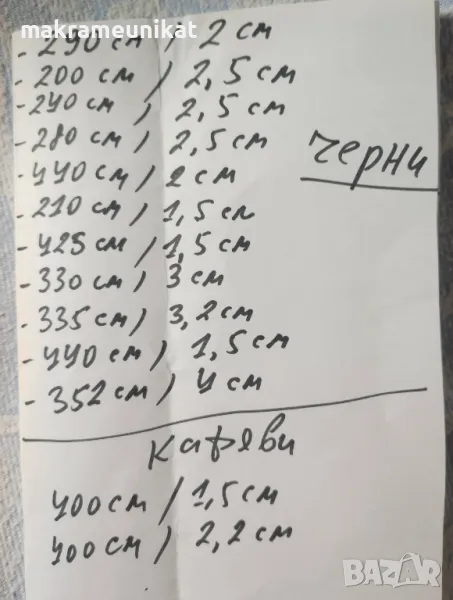 makrameunikat
- 290 см / 2 см
- 200 см / 2,5 см
- 240 см / 2,5 см
- 280 см / 2,5 см
черни
- 440 см / 2 см
- 210 см / 1,5 см
- 425 см / 1,5 см
- 330 см / 3 см
- 335 см / 3,2 см
- 440 см / 1,5 см
- 352 см / 4 см
кафяви
400 см / 1,5 см
400 см / 2,2 см
BAZAR